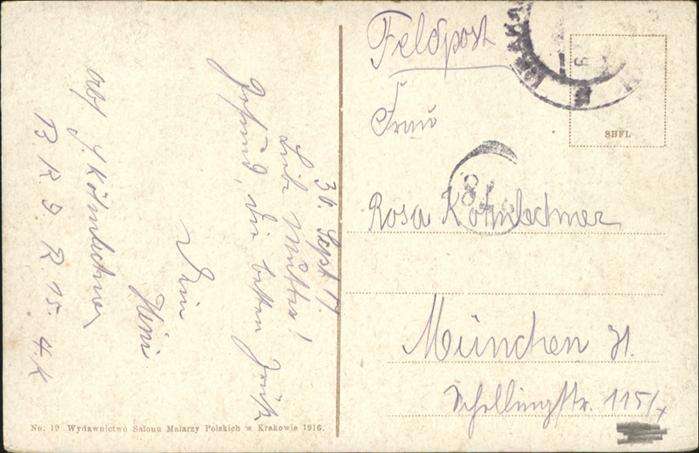 30. Sept 17
Liebe Mutter!
Gesund, die besten Grüße
Dein
Heini
Abs J. Köhnlechner
B. R. 9 R 15. 4. K
Feldpost
Frau
Rosa Köhnlechner
München 31.
Schellingstr. 115/
SBFL
No. 19 Wydawnictwo Salonu Malarzy Polskich w Krakowie 1916.